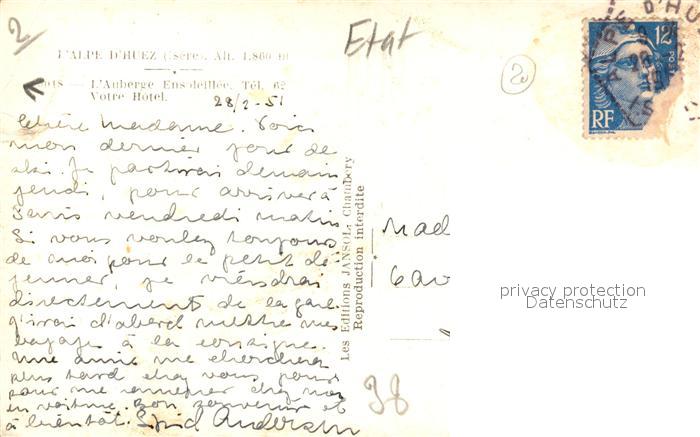 2
Etat
D'HUE
12F
RF
2
L'ALPE D'HUEZ (Isère). Alt. 1.860 m
— L'Auberge Ensoleillée, Tél. 62
Votre Hôtel.
28/2-51
Chère Madame. Voici
mon dernier jour de
ski. Je partirai demain
jeudi, pour arriver à
Paris vendredi matin
Si vous voulez toujours
de moi pour le petit dé-
jeuner, je viendrai
directement de la gare
J'irai d'abord mettre mes
bagages à la consigne.
Une amie me cherchera
plus tard chez vous pour
pour me emmener chez moi
en voiture. Bon souvenir et
à bientôt. Anderson
Les Editions JANSOL, Chambéry
Reproduction interdite
Mad
38
privacy protection
Datenschutz